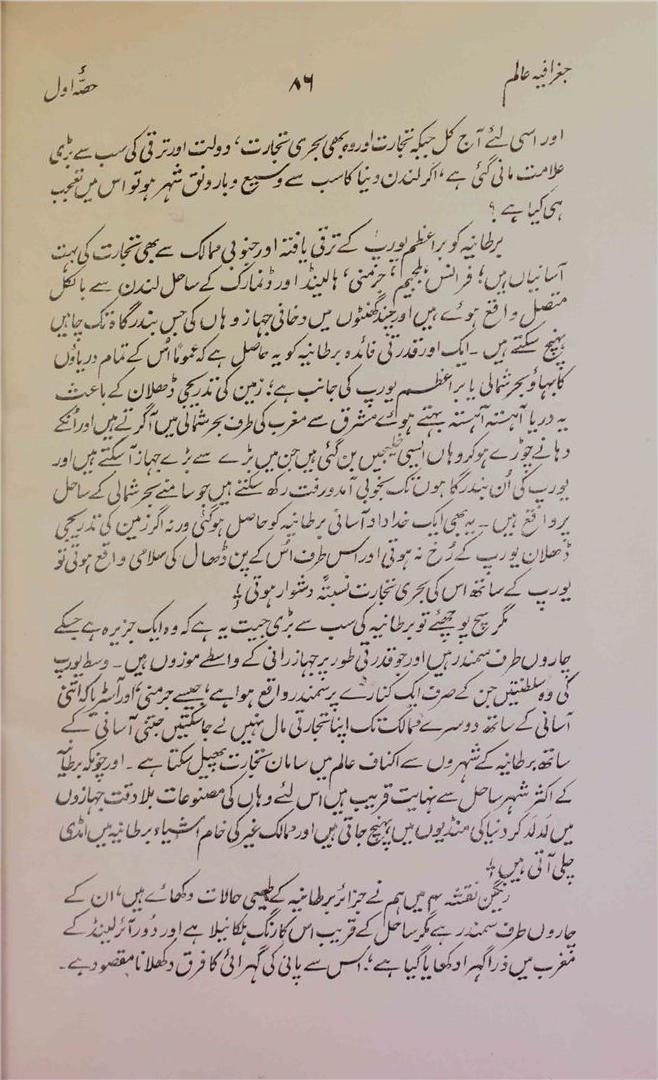 جغرافیہ عالم
۸۶
حصّہ اول
اور اسی لئے آج کل جبکہ تجارت اور وہ بھی بحری تجارت، دولت اور ترقی کی سب سے بڑی
علامت مانی گئی ہے، اگر لندن دنیا کا سب سے وسیع و بارونق شہر ہو تو اس میں تعجب
ہی کیا ہے ؟
برطانیہ کو براعظم یورپ کے ترقی یافتہ اور جنوبی ممالک سے بھی تجارت کی بہت
آسانیاں ہیں، فرانس، بلجیم، جرمنی، ہالینڈ اور ڈنمارک کے ساحل لندن سے بالکل
متصل واقع ہوئے ہیں اور چند گھنٹوں میں دخانی جہاز وہاں کی جس بندرگاہ تک چاہیں
پہنچ سکتے ہیں ۔ ایک اور قدرتی فائدہ برطانیہ کو یہ حاصل ہے کہ عموماً اُس کے تمام دریاؤں
کا بہاؤ بحر شمالی یا براعظم یورپ کی جانب ہے، زمین کی تدریجی ڈھلان کے باعث
یہ دریا آہستہ آہستہ بہتے ہوئے مشرق سے مغرب کی طرف بحر شمالی میں آگرتے ہیں اور انکے
دہانے چوڑے ہو کر وہاں ایسی خلیجیں بن گئی ہیں جن میں بڑے سے بڑے جہاز آ سکتے ہیں اور
یورپ کی اُن بندرگاہوں تک بخوبی آمدورفت رکھ سکتے ہیں جو سامنے بحر شمالی کے ساحل
پر واقع ہیں ۔ یہ بھی ایک خداداد آسانی برطانیہ کو حاصل ہو گئی ورنہ اگر زمین کی تدریجی
ڈھلان یورپ کے رُخ نہ ہوتی اور اس طرف اُس کے پن ڈھال کی سلامی واقع ہوتی تو
یورپ کے ساتھ اس کی بحری تجارت نسبتہً دشوار ہوتی
مگر سچ پوچھئے تو برطانیہ کی سب سے بڑی جیت یہ ہے کہ وہ ایک جزیرہ ہے جسکے
چاروں طرف سمندر ہیں اور جو قدرتی طور پر جہازرانی کے واسطے موزوں ہیں ۔ وسط یورپ
کی وہ سلطنتیں جن کے صرف ایک کنارے پر سمندر واقع ہوا ہے، جیسے جرمنی، اور آسٹریا کہ اتنی
آسانی کے ساتھ دوسرے ممالک تک اپنا تجارتی مال نہیں لے جا سکتیں جتنی آسانی کے
ساتھ برطانیہ کے شہروں سے اکناف عالم میں سامان تجارت پھیل سکتا ہے ۔ اور چونکہ برطانیہ
کے اکثر شہر ساحل سے نہایت قریب ہیں اس لئے وہاں کی مصنوعات بلا دقت جہازوں
میں لد لد کر دنیا کی منڈیوں میں پہنچ جاتی ہیں اور ممالک غیر کی خام اشیاء برطانیہ میں امڈی
چلی آتی ہیں
رنگین نقشہ میں ہم نے جزائر برطانیہ کے طبیعی حالات دکھائے ہیں، ان کے
چاروں طرف سمندر ہے مگر ساحل کے قریب اس کا رنگ ہلکا نیلا ہے اور دُور آئرلینڈ کے
مغرب میں ذرا گہرا دکھایا گیا ہے، اس سے پانی کی گہرائی کا فرق دکھلانا مقصود ہے۔